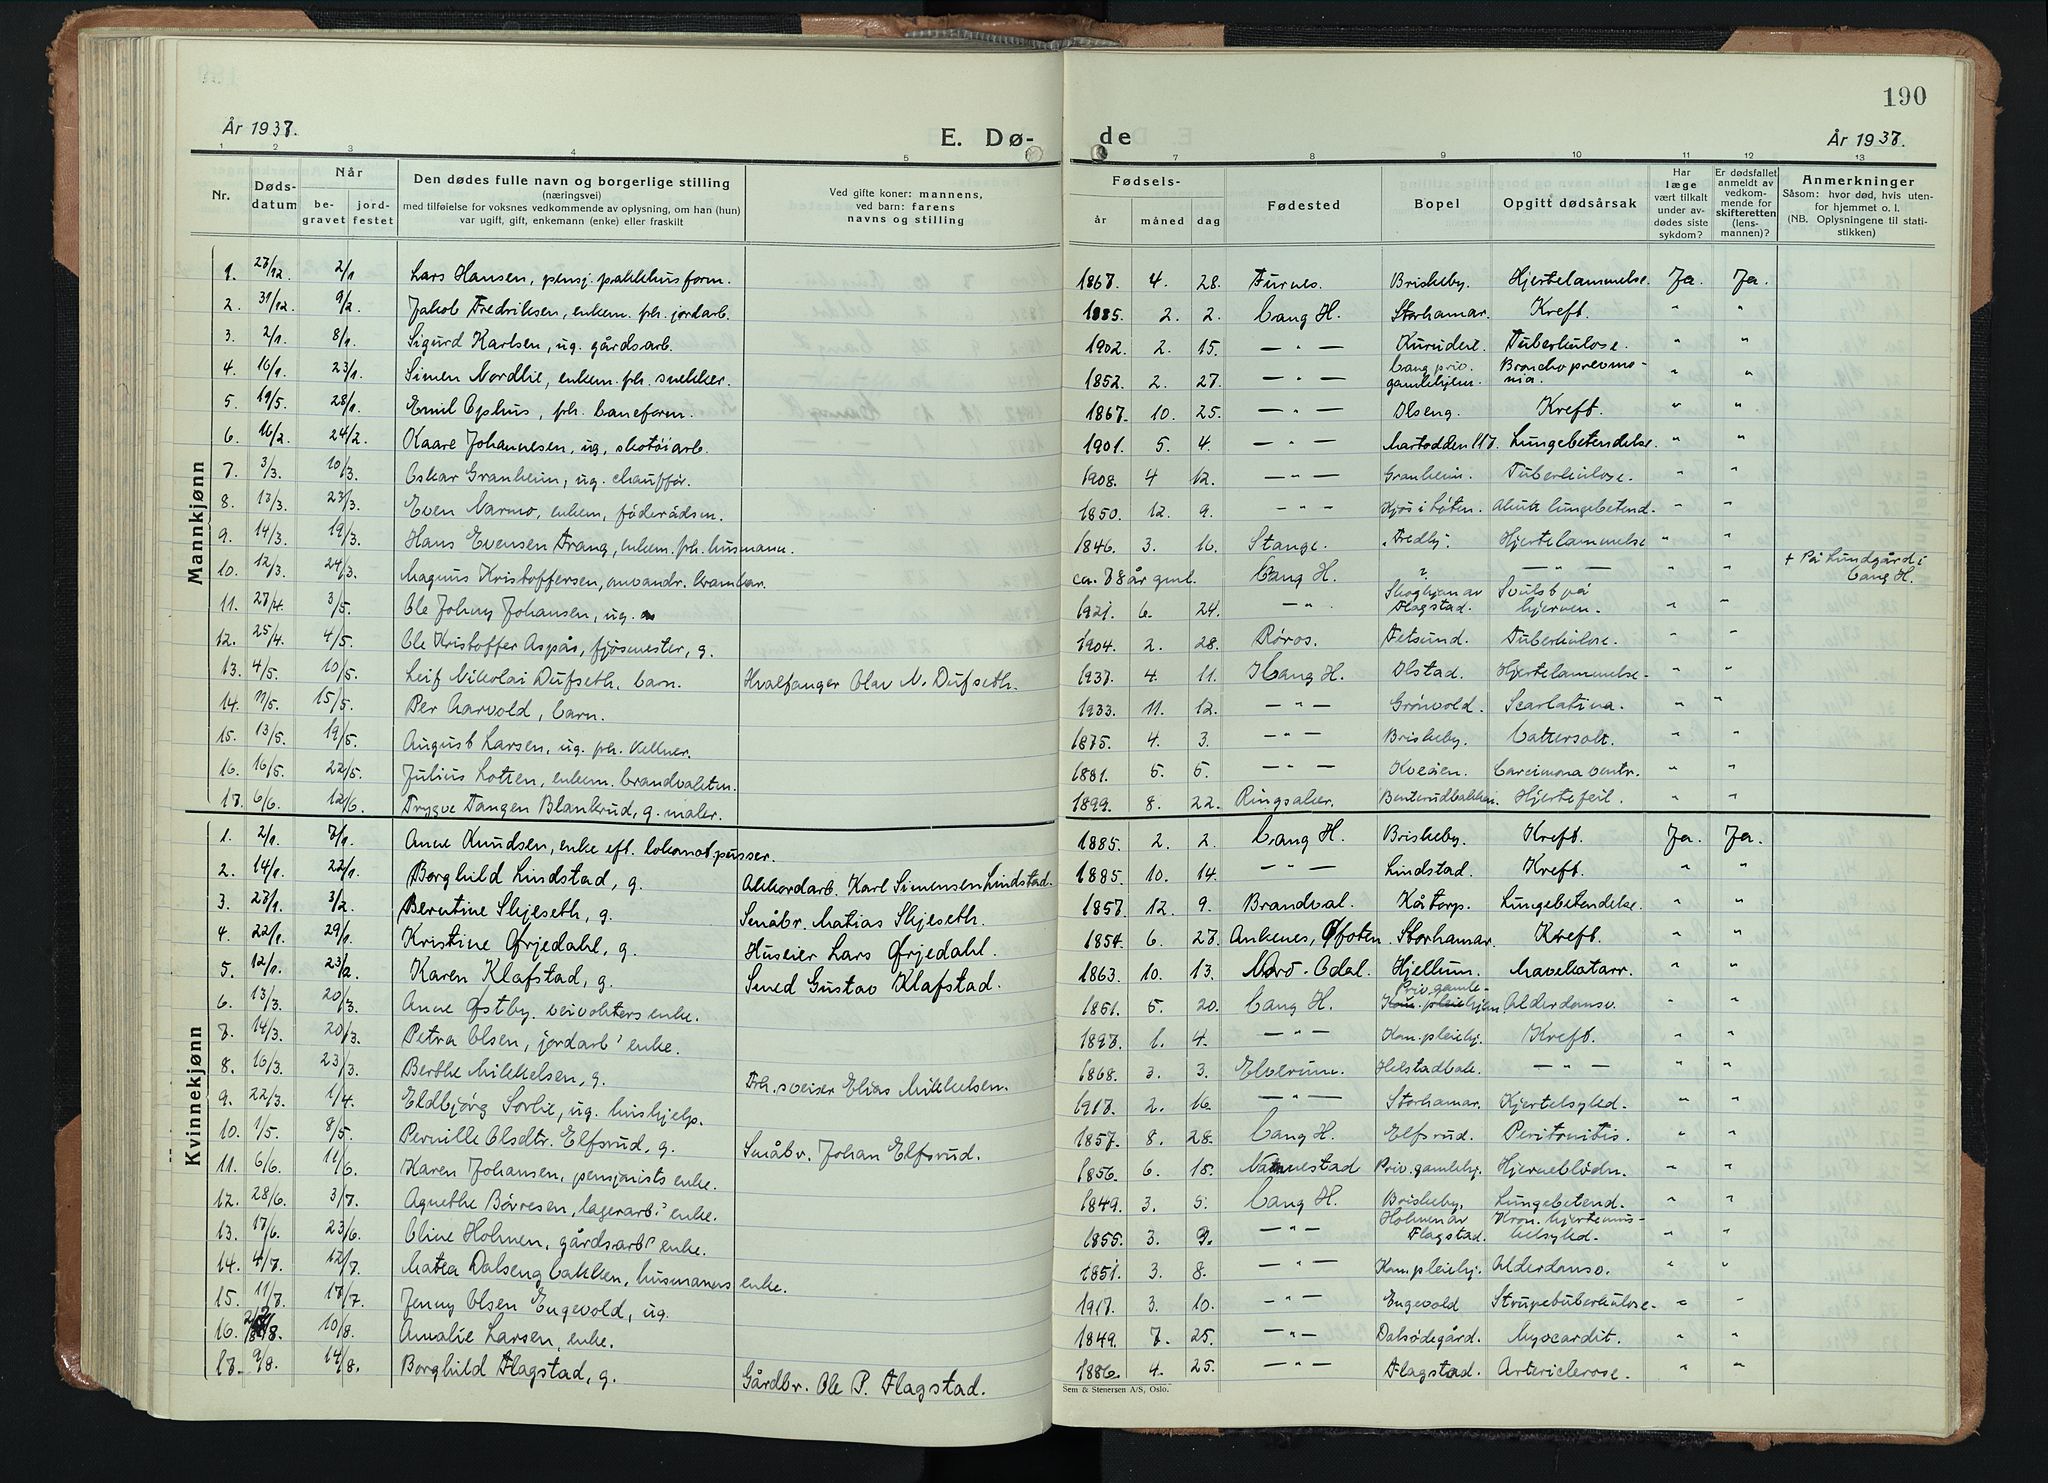 190
År 1937.
E. Dø-
de
År 1937.
1 2 3 4 5 7 8 9 10 11 12 13
Nr.
Døds-
datum
Når
be-
gravet
jord-
festet
Den dødes fulle navn og borgerlige stilling
(næringsvei)
med tilføielse for voksnes vedkommende av oplysning, om han (hun)
var ugift, gift, enkemann (enke) eller fraskilt
Ved gifte koner: mannens,
ved barn: farens
navns og stilling
Fødsels-
år
måned
dag
Fødested
Bopel
Opgitt dødsårsak
Har
læge
vært tilkalt
under av-
dødes siste
sykdom?
Er dødsfallet
anmeldt av
vedkom-
mende for
skifteretten
(lens-
mannen)?
Anmerkninger
Såsom: hvor død, hvis uten-
for hjemmet o. l.
(NB. Oplysningene til stati-
stikken)
Mannkjønn
1. 27/12. 2/1 Lars Hansen, pensj. pakkhusform. 1867. 4. 28. Furnes. Briskeby. Hjertelammelse. Ja. Ja.
2. 31/12. 9/2. Jakob Fredriksen, enkem. fh. jordarb. 1885. 2. 2. Vang H. Storhamar. Kreft. " "
3. 2/1. 8/1. Sigurd Karlsen, ug. gårdsarb. 1902. 2. 15. — " — Tuberkulose. " "
4. 16/1. 23/1. Simen Nordlie, enkem. fh. snekker. 1852. 2. 27. — " — Vang priv.
gamlehjem. Bronchopnevmo-
nia. " "
5. 19/5. 28/1. Emil Ophus, fh. baneform. 1867. 10. 25. — " — Olseng. Kreft. " "
6. 16/2. 24/2. Kaare Johannesen, ug, skotøiarb. 1901. 5. 4. — " — Martodden 117. Lungebetendelse. " "
7. 3/3. 10/3. Oskar Granheim, ug. chauffør. 1908. 4 12. — " — Granheim. Tuberkulose. " "
8. 13/3. 23/3. Even Narmo, enkem, føderådsm. 1850. 12. 9. — " — Kjos i Løten. Akutt lungebetend. " "
9. 14/3. 19/3. Hans Evensen Frang, enkem. fh. husmann. 1846. 3. 16. Stange. "Fredly". Hjertelammelse " "
10. 12/3. 24/3. Magnus Kristoffersen, omvandr. ca. 78 år gml. Vang H. ? — " — " " + På Lundgård i
Vang H.
11. 27/4. 3/5. Ole Johny Johansen, ug. 1921. 6. 24. — " — Skoghjem av
Flagstad. Svulst på
hjernen. " "
12. 25/4. 4/5. Ole Kristoffer Aspås, fjøsmester, g. 1904. 2. 28. Røros. Fetsund. Tuberkulose. " "
13. 4/5. 10/5. Leif Nikolai Dufseth, barn. Hvalfanger Olav N. Dufseth. 1937. 4. 11. Vang H. Olstad. Hjertelammelse. " "
14. 11/5. 15/5. Per Aarvold, barn. 1933. 11. 12. — " — Grønvold. Scarlatina. " "
15. 13/5. 19/5. August Larsen, ug. fh. kellner. 1875. 4. 3. — " — Briskeby. " "
16. 16/5. 22/5. Julius Lotten, enkem. brandvaktm. 1881. 5. 5. — " — Kveåen. Carcinoma ventr. " "
17. 6/6. 12/6. Trygve Tangen Blankrud, g. maler. 1899. 8. 22. Ringsaker. Benterudbakken. Hjertefeil. " "
Kvinnekjønn
1. 2/1. 7/1. Anne Knudsen, enke eft. lokomotpusser. 1885. 2. 2. Vang H. Briskeby. Kreft. Ja. Ja.
2. 14/1. 22/1. Borghild Lindstad, g. Akkordarb. Karl Simensen Lindstad. 1885. 10. 14. — " — Lindstad. Kreft. " "
3. 27/1. 3/2. Berntine Skjeseth, g. Småbr. Matias Skjeseth. 1857. 12. 9. Brandval. Kåtorp. Lungebetendelse. " "
4. 22/1. 29/1. Kristine Ørjedahl, g. Huseier Lars Ørjedahl. 1854. 6. 27. Ankenes, Ofoten. Storhamar. Kreft. " "
5. 12/1. 23/2. Karen Klafstad, g. Smed Gustav Klafstad. 1863. 10. 13. Nord-Odal. Hjellum. Mavekatarr. " "
6. 13/3. 20/3. Anne Østby, veivokters enke. 1851. 5. 20. Vang H. Priv. gamle-
Kom. pleiehjem Alderdomsv. " "
7. 14/3. 20/3. Petra Olsen, jordarb' enke. 1893. 1. 4. — " — Kom. pleiehj. Kreft. " "
8. 16/3. 23/3. Berthe Mikkelsen, g. Fh. sveiser Elias Mikkelsen. 1868. 3. 3. Elverum. Helstadbak. — " — " "
9. 22/3. 1/4. Eldbjørg Sorlie, ug. hushjelp. 1917. 2. 16. — " — Storhamar. Kjertelsykd. " "
10. 1/5. 8/5. Pernille Olsdtr. Elfsrud, g. Småbr. Johan Elfsrud. 1857. 8. 28. Vang H. Elfsrud. Peritonitis. " "
11. 6/6. 11/6. Karen Johansen, pensjonists enke. 1856. 6. 15. Nannestad Priv. gamlehj. Hjerneblødn. " "
12. 28/6. 3/7. Agnethe Børresen, lagerarb.' enke. 1849. 3. 5. Vang H. Briskeby. Lungebetend. " "
13. 17/6. 23/6. Oline Holmen, gårdsarb' enke. 1855. 3. 9. — " — Holmen av
Flagstad. Kron. hjertemus-
kelsykd. " "
14. 4/7. 12/7. Matea Dalseng bakken, husmanns enke. 1851. 3. 8. — " — Kom. pleiehj. Alderdomsv. " "
15. 11/7. 17/7. Jenny Olsen Engevold, ug. 1917. 3. 10. — " — Engevold Strupetuberkulose. " "
16. 10/8. Amalie Larsen, enke. 1849. 7. 25. — " — Dalsødegård. Myocardit. " "
17. 9/8. 14/8. Borghild Flagstad, g. Gårdbr. Ole P. Flagstad. 1886. 4. 25. — " — Flagstad. Artericlerose. " "
Sem & Stenersen A/S, Oslo.